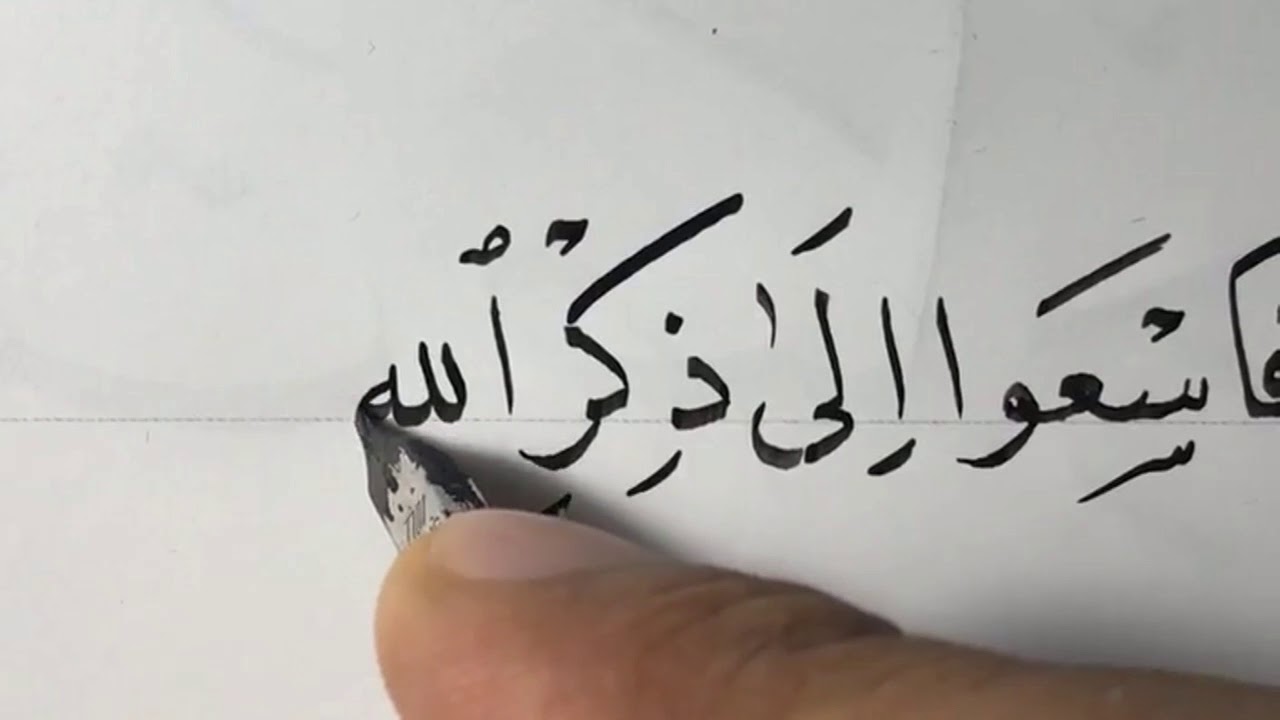 فَاسْعَوا اِلَىٰ ذِكْرِ ٱلله